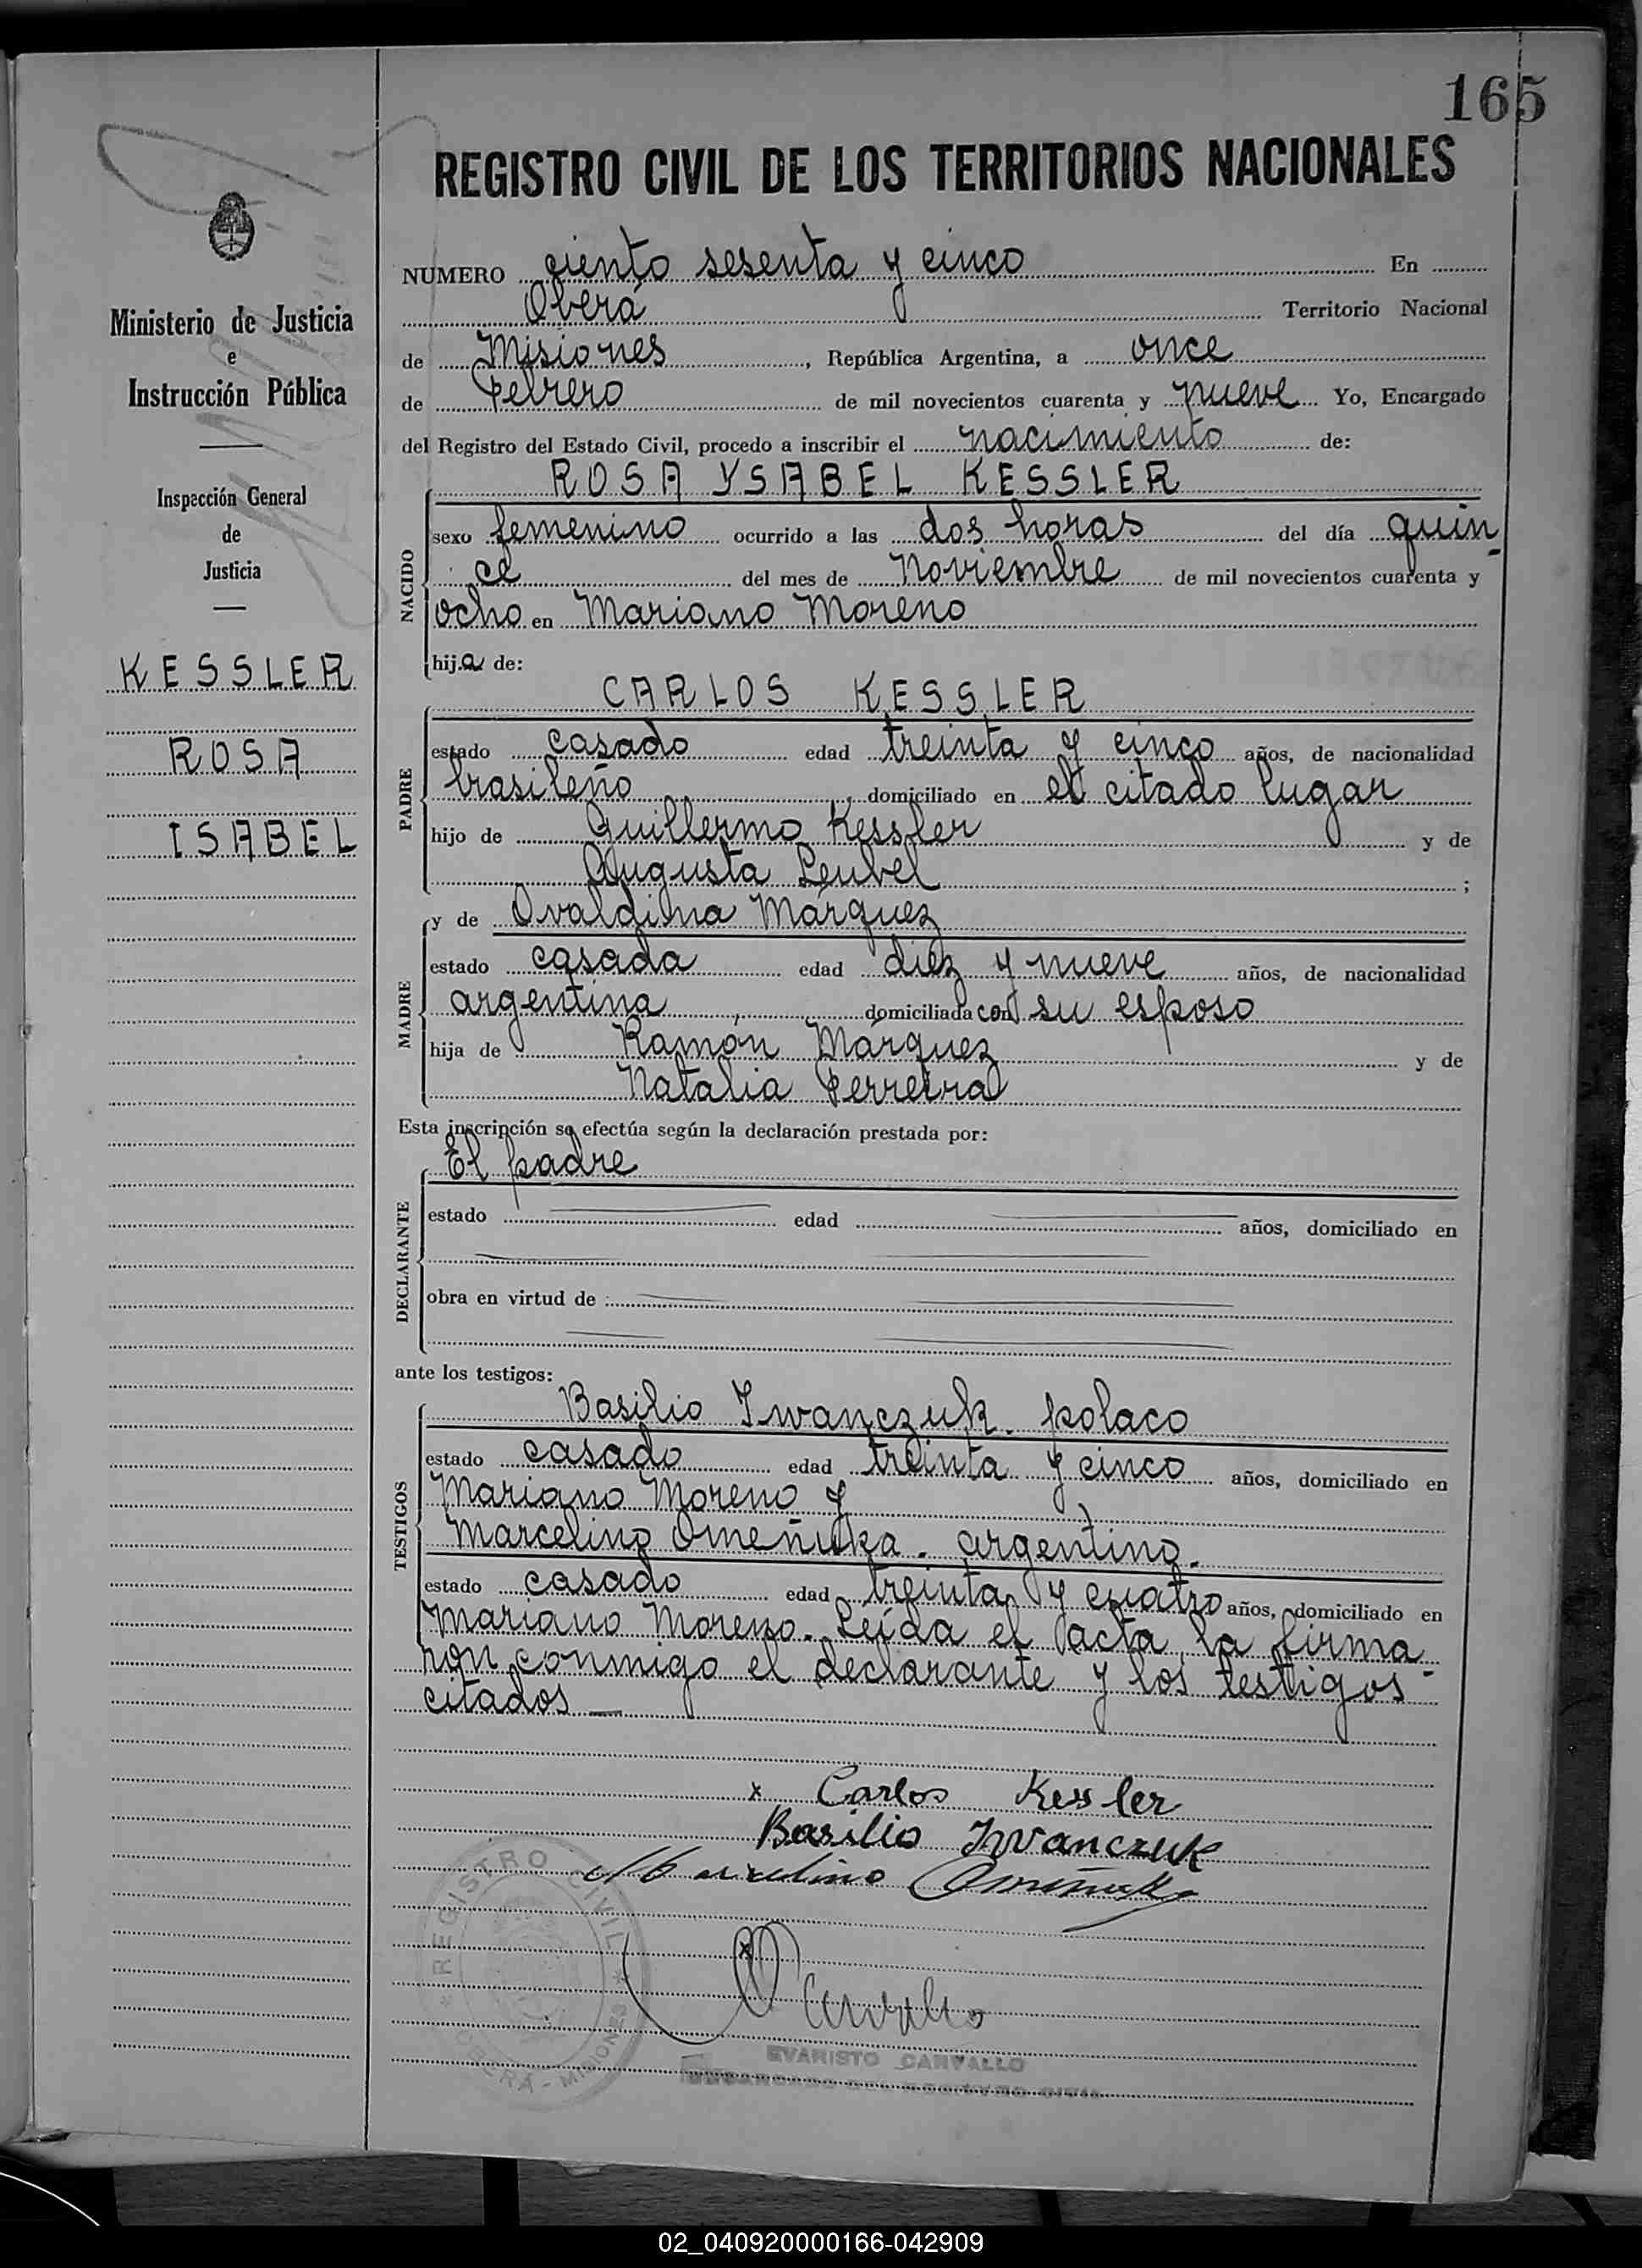 165
REGISTRO CIVIL DE LOS TERRITORIOS NACIONALES
Ministerio de Justicia
e
Instrucción Pública
Inspección General
de
Justicia
KESSLER
ROSA
ISABEL
NUMERO ciento sesenta y cinco En
Oberá Territorio Nacional
de Misiones, República Argentina, a once
de Febrero de mil novecientos cuarenta y nueve Yo, Encargado
del Registro del Estado Civil, procedo a inscribir el nacimiento de:
ROSA YSABEL KESSLER
NACIDO
sexo femenino ocurrido a las dos horas del día quin-
ce del mes de Noviembre de mil novecientos cuarenta y
ocho en Mariano Moreno
hija de:
CARLOS KESSLER
PADRE
estado casado edad treinta y cinco años, de nacionalidad
brasileño, domiciliado en el citado lugar
hijo de Guillermo Kessler y de
Augusta Leubel;
MADRE
y de Ovaldina Márquez
estado casada edad diez y nueve años, de nacionalidad
argentina, domiciliada con su esposo
hija de Ramón Márquez y de
Natalia Ferreira
Esta inscripción se efectúa según la declaración prestada por:
DECLARANTE
El padre
estado edad años, domiciliado en
obra en virtud de
ante los testigos:
TESTIGOS
Basilio Iwanczuk. polaco
estado casado edad treinta y cinco años, domiciliado en
Mariano Moreno y
Marcelino Omeñuka. argentino.
estado casado edad treinta y cuatro años, domiciliado en
Mariano Moreno. Leída el acta, la firma-
ron conmigo el declarante y los testigos
citados
x Carlos Kessler
Basilio Iwanczuk
Marcelino
Carvallo
REGISTRO CIVIL
* OBERA - MISIONES *
EVARISTO CARVALLO
ENCARGADO DEL REGISTRO CIVIL
02_040920000166-042909